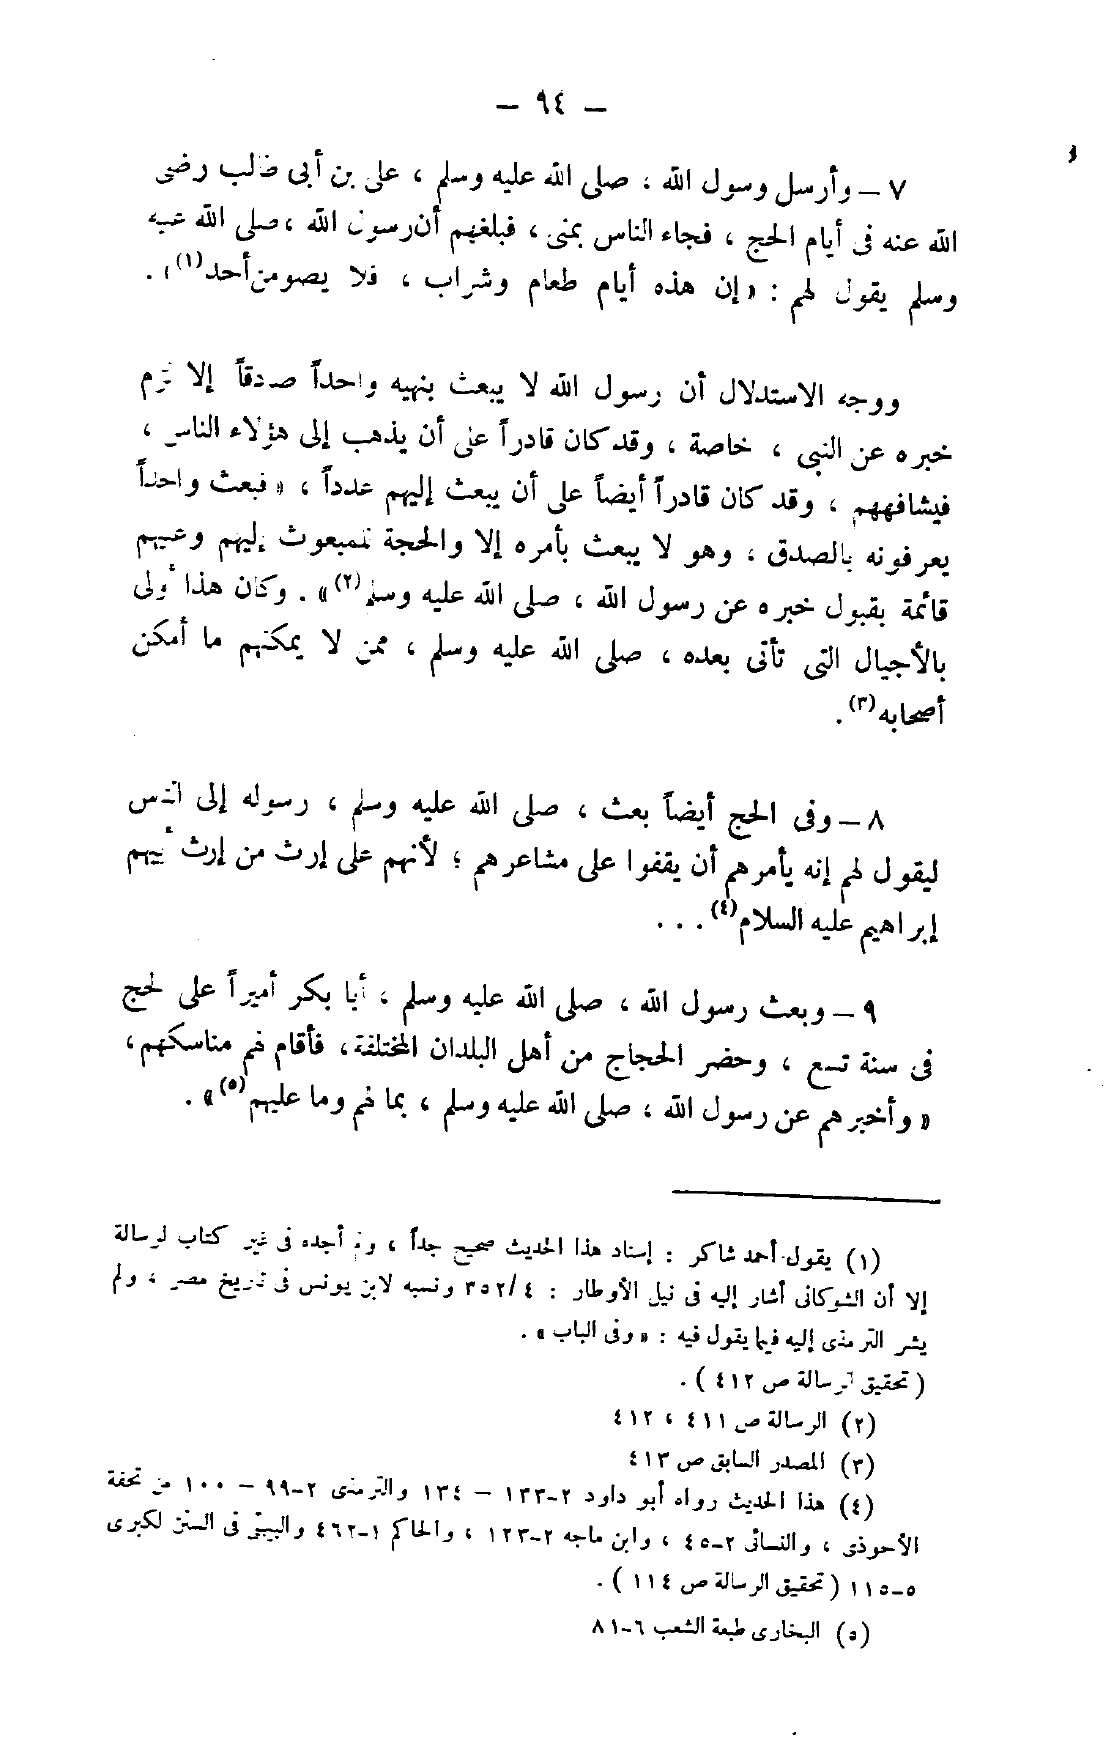 — ٩٤ —
٧ – وأرسل رسول الله ، صلى الله عليه وسلم ، على بن أبى طالب رضى
الله عنه فى أيام الحج ، فجاء الناس بمنى ، فبلغهم أن رسول الله ، صلى الله عليه
وسلم يقول لهم : « إن هذه أيام طعام وشراب ، فلا يصومن أحد(١) » .
ووجه الاستدلال أن رسول الله لا يبعث بنهيه واحداً صدقاً إلا لزم
خبره عن النبى ، خاصة ، وقد كان قادراً على أن يذهب إلى هؤلاء الناس ،
فيشافههم ، وقد كان قادراً أيضاً على أن يبعث إليهم عدداً ، « فبعث واحداً
يعرفونه بالصدق ، وهو لا يبعث بأمره إلا والحجة للمبعوث إليهم وعليهم
قائمة بقبول خبره عن رسول الله ، صلى الله عليه وسلم(٢) » . وكان هذا أولى
بالأجيال التى تأتى بعده ، صلى الله عليه وسلم ، ممن لا يمكنهم ما أمكن
أصحابه(٣) .
٨ – وفى الحج أيضاً بعث ، صلى الله عليه وسلم ، رسوله إلى الناس
ليقول لهم إنه يأمرهم أن يقفوا على مشاعرهم ؛ لأنهم على إرث من إرث أبيهم
إبراهيم عليه السلام(٤) . . .
٩ – وبعث رسول الله ، صلى الله عليه وسلم ، أبا بكر أميراً على الحج
فى سنة تسع ، وحضر الحجاج من أهل البلدان المختلفة ، فأقام لهم مناسكهم ،
« وأخبرهم عن رسول الله ، صلى الله عليه وسلم ، بما لهم وما عليهم(٥) » .
(١) يقول أحمد شاكر : إسناد هذا الحديث صحيح جداً ، ولم أجده فى غير كتاب الرسالة
إلا أن الشوكانى أشار إليه فى نيل الأوطار : ٣٥٢/٤ ونسبه لابن يونس فى تاريخ مصر ، ولم
يشر الترمذى إليه فيما يقول فيه : « وفى الباب » .
( تحقيق الرسالة ص ٤١٢ ) .
(٢) الرسالة ص ٤١١ ، ٤١٢
(٣) المصدر السابق ص ٤١٣
(٤) هذا الحديث رواه أبو داود ٢–١٣٣ – ١٣٤ والترمذى ٢–٩٩ – ١٠٠ من تحفة
الأحوذى ، والنسائى ٢–٤٥ ، وابن ماجه ٢–١٢٣ ، والحاكم ١–٤٦٢ والبيهقى فى السنن الكبرى
٥–١١٥ ( تحقيق الرسالة ص ١١٤ ) .
(٥) البخارى طبعة الشعب ٦–٨١